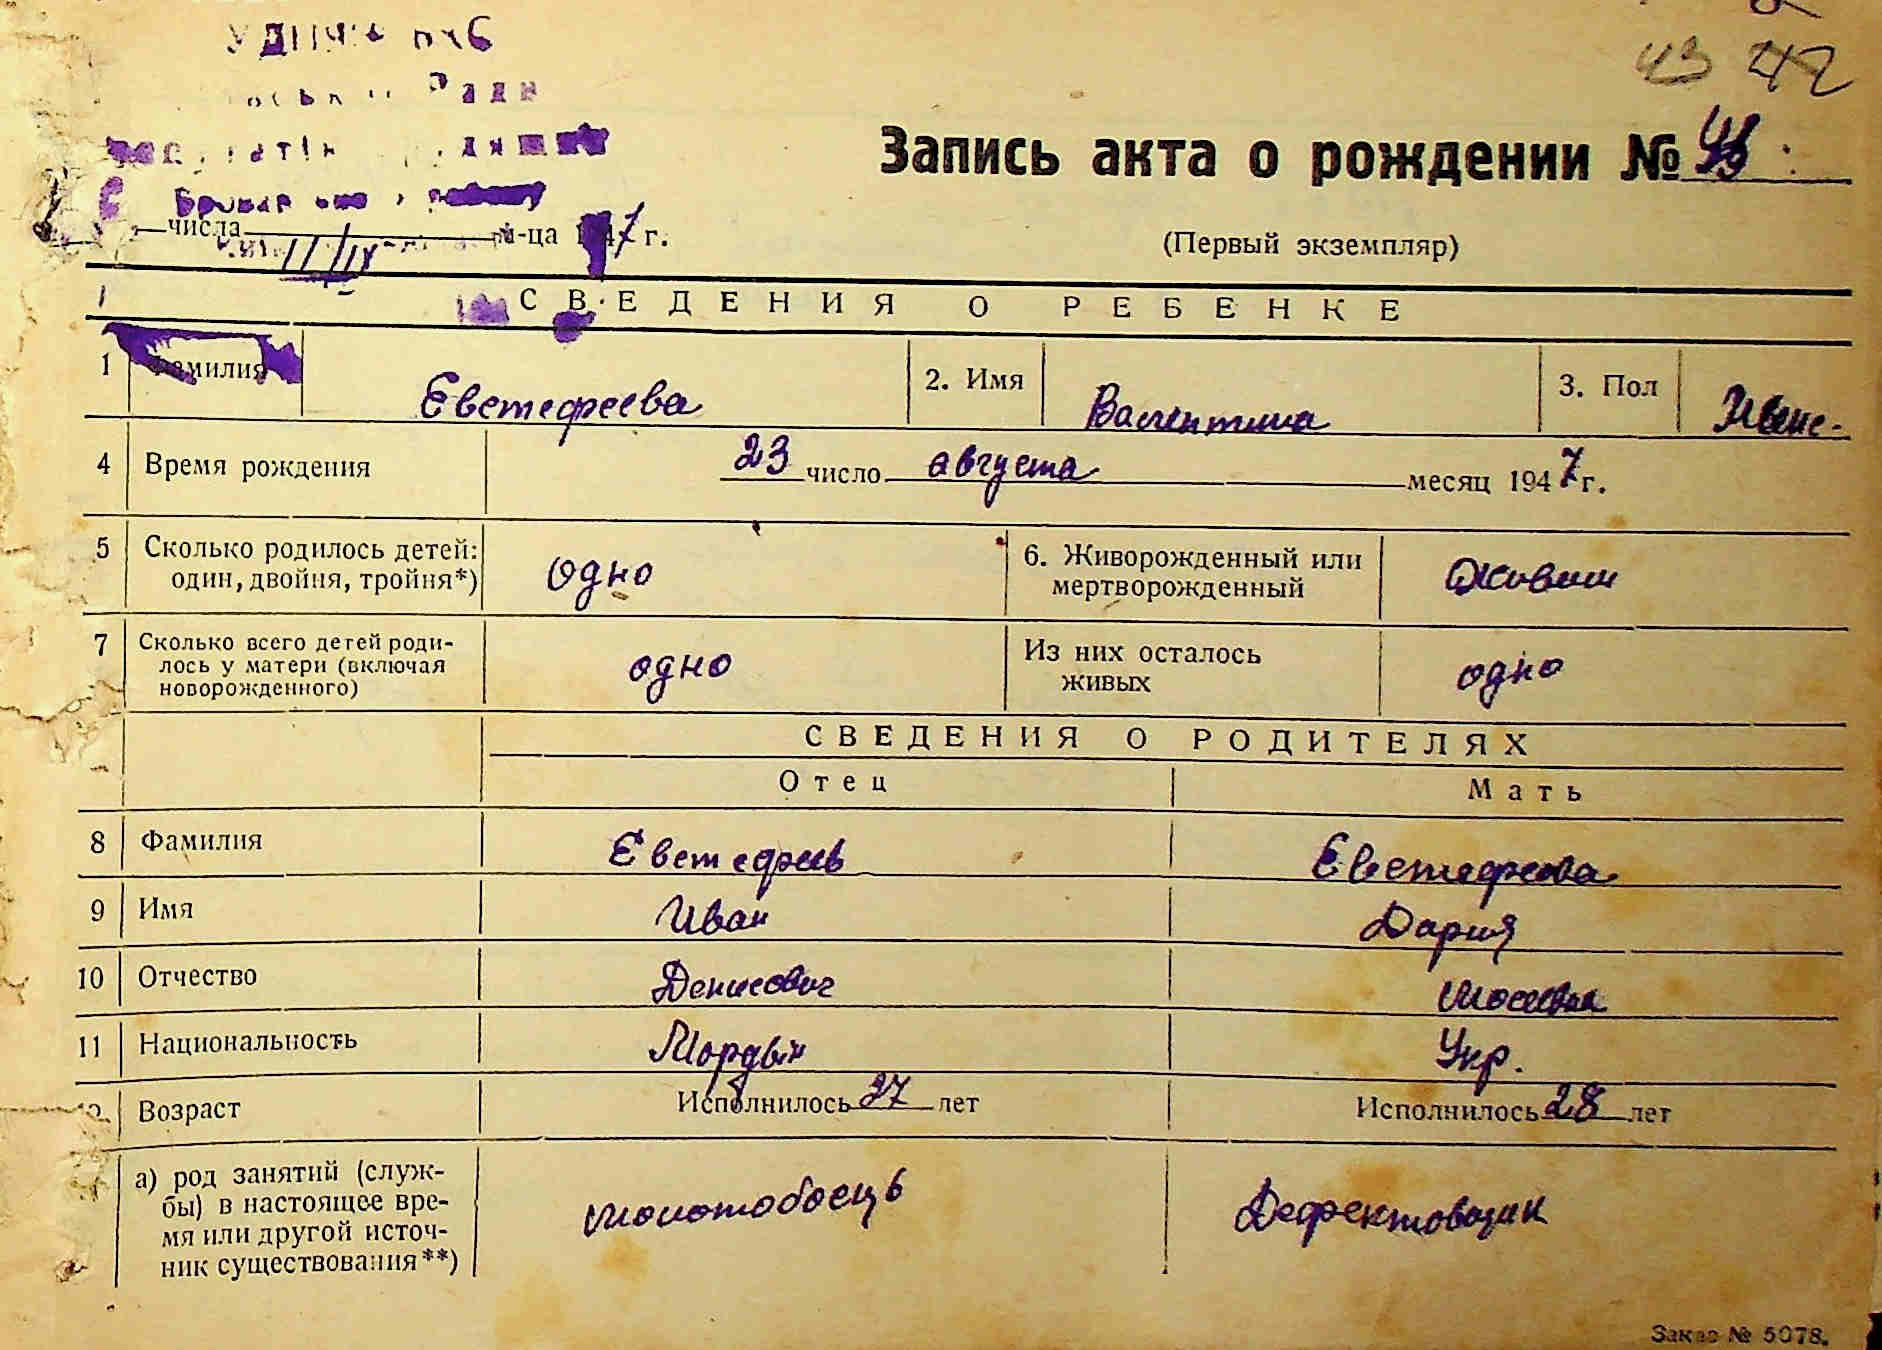 43 42
Запись акта о рождении № 43
числа 11/IX м-ца 1947 г.
(Первый экземпляр)
СВЕДЕНИЯ О РЕБЕНКЕ
1 Фамилия Евстефеева 2. Имя Валентина 3. Пол Женс.
4 Время рождения 23 число августа месяц 1947 г.
5 Сколько родилось детей: один, двойня, тройня*) одно 6. Живорожденный или мертворожденный
7 Сколько всего детей родилось у матери (включая новорожденного) одно Из них осталось живых одно
СВЕДЕНИЯ О РОДИТЕЛЯХ
Отец Мать
8 Фамилия Евстефеев Евстефеева
9 Имя Иван Дария
10 Отчество Денисович
11 Национальность Мордвин Укр.
12 Возраст Исполнилось 27 лет Исполнилось 28 лет
а) род занятий (служ-
бы) в настоящее вре-
мя или другой источ-
ник существования**) молотобоець Дефектовщик
Заказ № 5078.